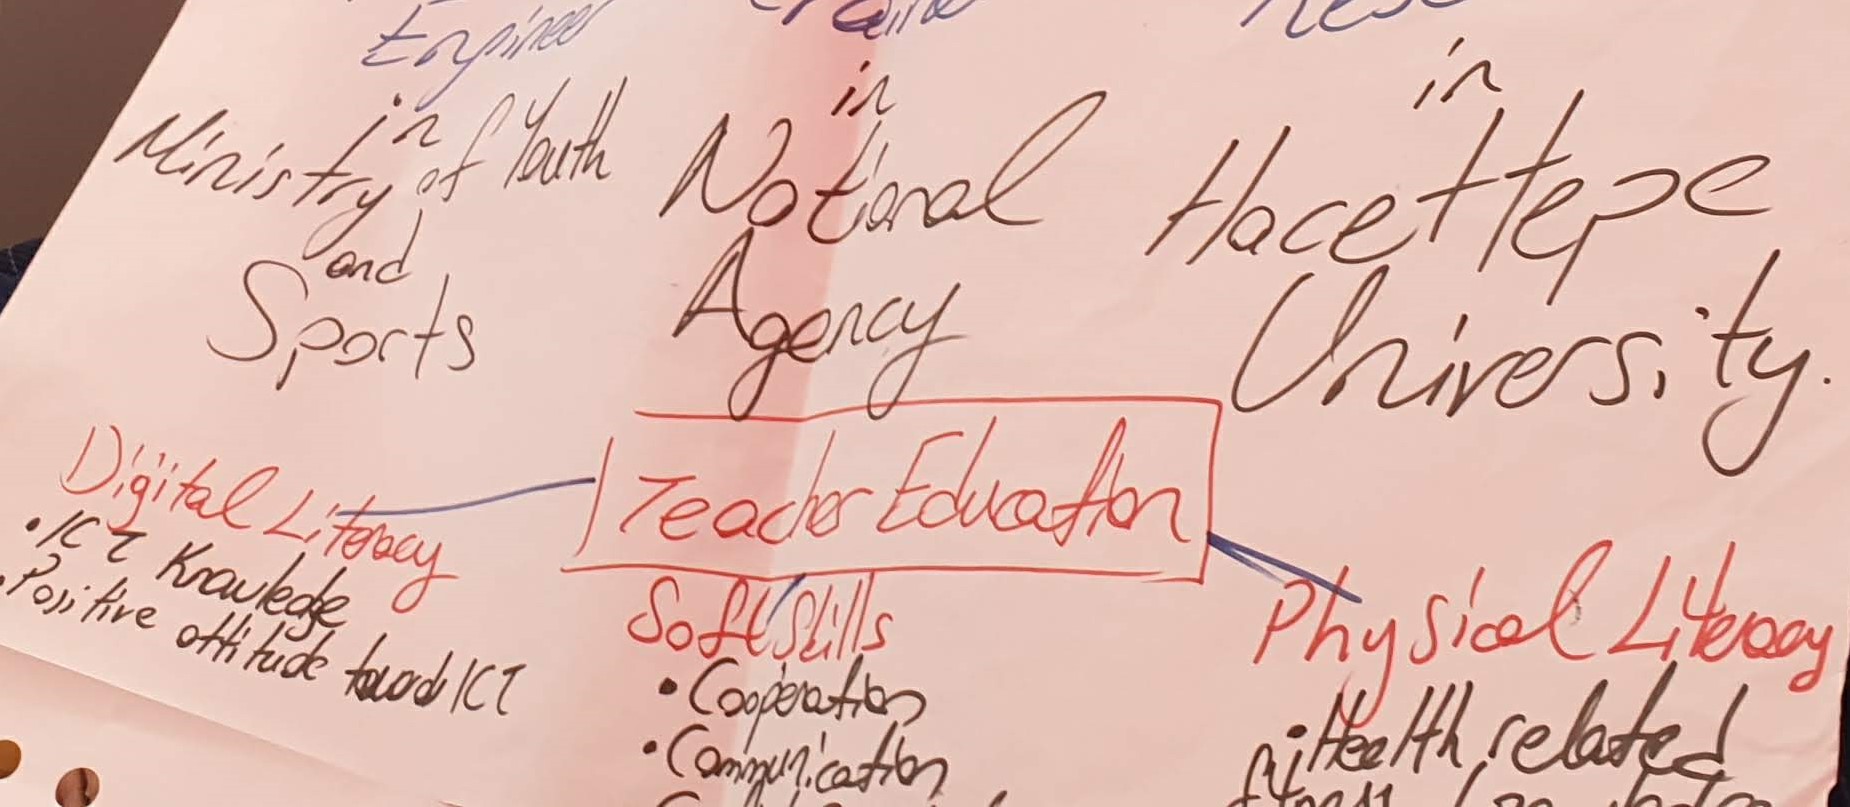 Engineer
in
Ministry of Youth
and
Sports
in
National
Agency
in
Hacettepe
University.
Teacher Education
Digital Literacy
• ICT Knowledge
• Positive attitude towards ICT
Soft Skills
• Cooperation
• Communication
Physical Literacy
• Health related